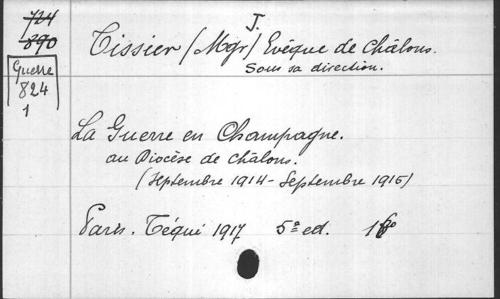 724
890
Guerre
824
1
J.
Tissier (Mgr) Evêque de Châlons.
Sous sa direction.
La Guerre en Champagne.
au Diocèse de Châlons.
(Septembre 1914 - Septembre 1915)
Paris. Téqui 1917 5e ed.